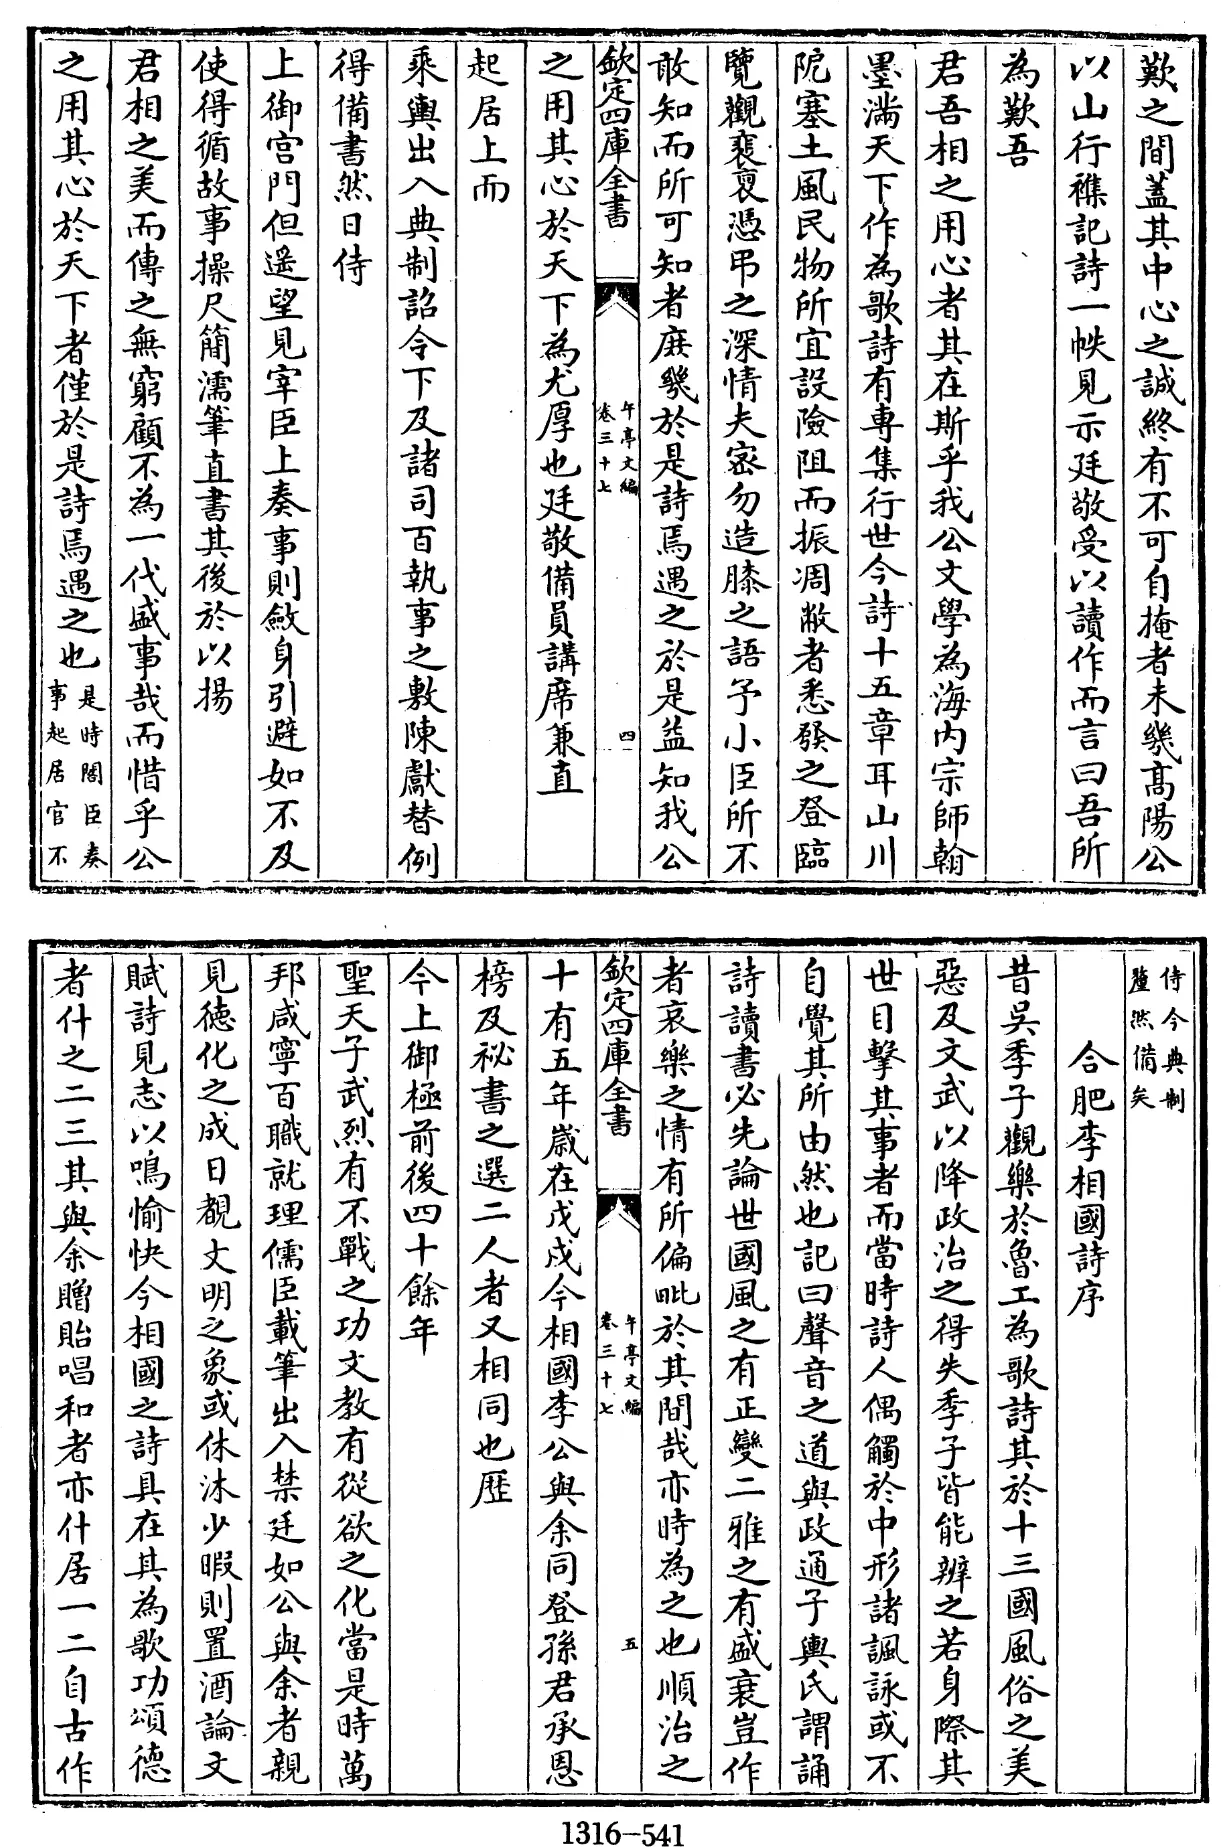 歎之間蓋其中心之誠終有不可自掩者未幾髙陽公
以山行襍記詩一帙見示廷敬受以讀作而言曰吾所
為歎吾
君吾相之用心者其在斯乎我公文學為海内宗師翰
墨滿天下作為歌詩有專集行世今詩十五章耳山川
阨塞土風民物所宜設險阻而振凋敝者悉發之登臨
覽觀裵裒憑弔之深情夫密勿造膝之語予小臣所不
敢知而所可知者庶幾於是詩焉遇之於是益知我公
欽定四庫全書
午亭文編
卷三十七
四
之用其心於天下為尤厚也廷敬備員講席兼直
起居上而
乘輿出入典制詔令下及諸司百執事之敷陳獻替例
得備書然日侍
上御宫門但遥望見宰臣上奏事則斂身引避如不及
使得循故事操尺簡濡筆直書其後於以揚
君相之美而傳之無窮顧不為一代盛事哉而惜乎公
之用其心於天下者僅於是詩焉遇之也是時閣臣奏
事起居官不
侍今典制
釐然備矣
合肥李相國詩序
昔吳季子觀樂於魯工為歌詩其於十三國風俗之美
惡及文武以降政治之得失季子皆能辨之若身際其
世目擊其事者而當時詩人偶觸於中形諸諷詠或不
自覺其所由然也記曰聲音之道與政通子輿氏謂誦
詩讀書必先論世國風之有正變二雅之有盛衰豈作
者哀樂之情有所偏毗於其間哉亦時為之也順治之
欽定四庫全書
午亭文編
卷三十七
五
十有五年嵗在戊戌今相國李公與余同登孫君承恩
榜及祕書之選二人者又相同也歷
今上御極前後四十餘年
聖天子武烈有不戰之功文教有從欲之化當是時萬
邦咸寧百職就理儒臣載筆出入禁廷如公與余者親
見德化之成日覩文明之象或休沐少暇則置酒論文
賦詩見志以鳴愉快今相國之詩具在其為歌功頌德
者什之二三其與余贈貽唱和者亦什居一二自古作
1316-541